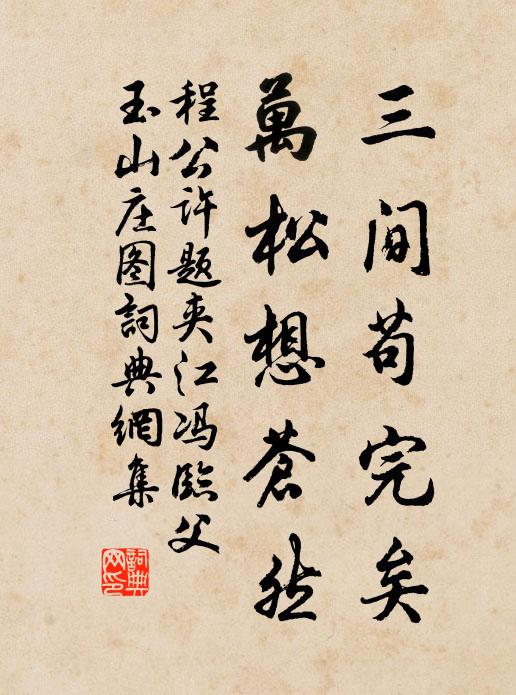 三间苟完矣
萬松想蒼然
程公许题夹江冯临父
玉山庄图詞典網集
詞典
网印